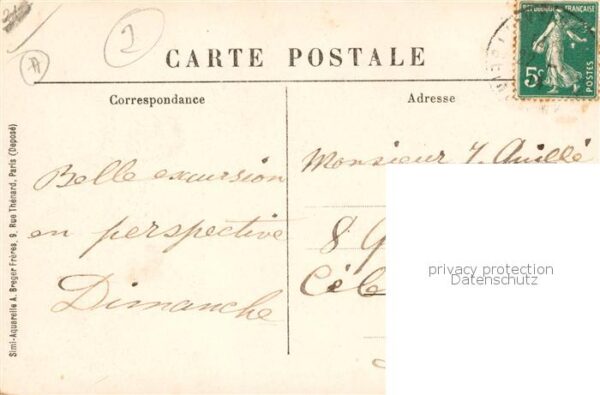 CARTE POSTALE
RÉPUBLIQUE FRANÇAISE
5c
POSTES
Correspondance
Adresse
Belle excursion
en perspective
Dimanche
Monsieur
8
privacy protection
Datenschutz
Simi-Aquarelle A. Breger Frères, 9, Rue Thénard, Paris (Déposé)